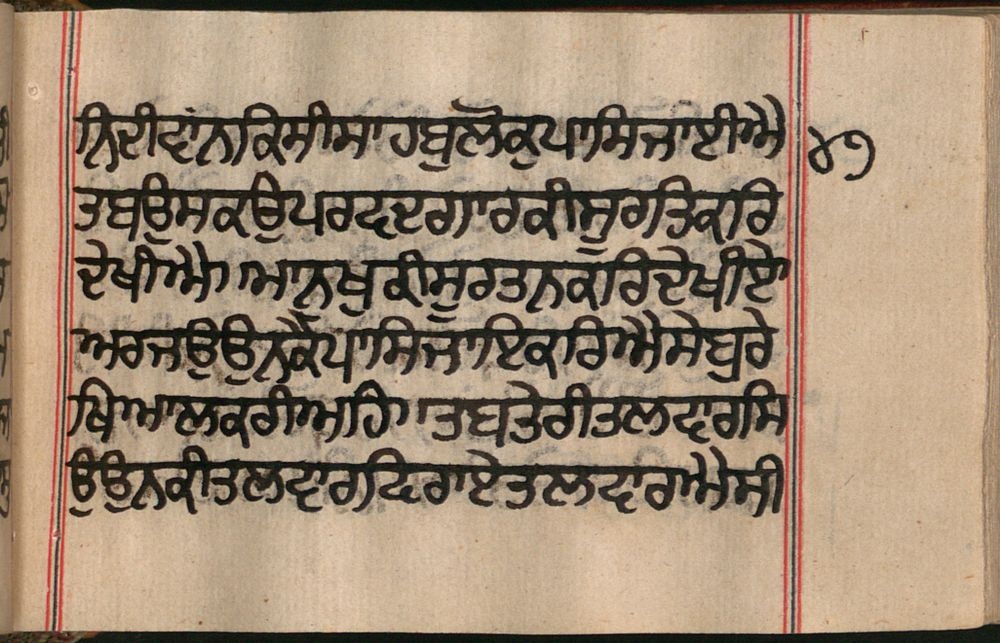 ਨਿਦੀਵਾਂਨਕਿਸੀਸਾਹਬੁਲੋਕੁਪਾਸਿਜਾਈਐ ੪੭
ਤਬਉਸਕਉਪਰਵਦਗਾਰਕੀਸੂਰਤਿਕਰਿ
ਦੇਖੀਐ।ਮਾਨੁਖੁਕੀਸੂਰਤਨਕਰਿਦੇਖੀਏ
ਅਰਜਉਉਨਕੈਪਾਸਿਜਾਇਕਰਿਐਸੇਬੁਰੇ
ਖਿਆਲਕਰੀਅਹਿ।ਤਬਤੇਰੀਤਲਵਾਰਸਿ
ਉਉਨਕੀਤਲਵਾਰਫਿਰਾਏਤਲਵਾਰਐਸੀ